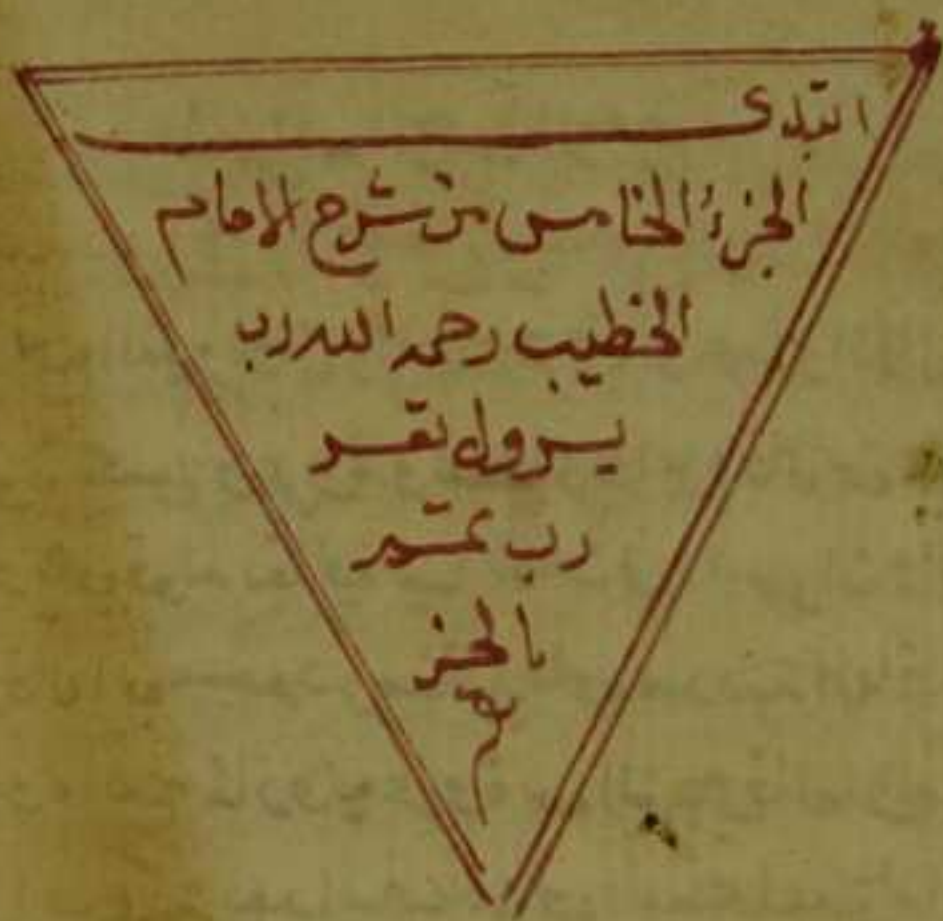 ابتدى
الجزء الخامس من شرح الامام
الخطيب رحمه الله رب
يسر ولا تعسر
رب تمم
بالخير